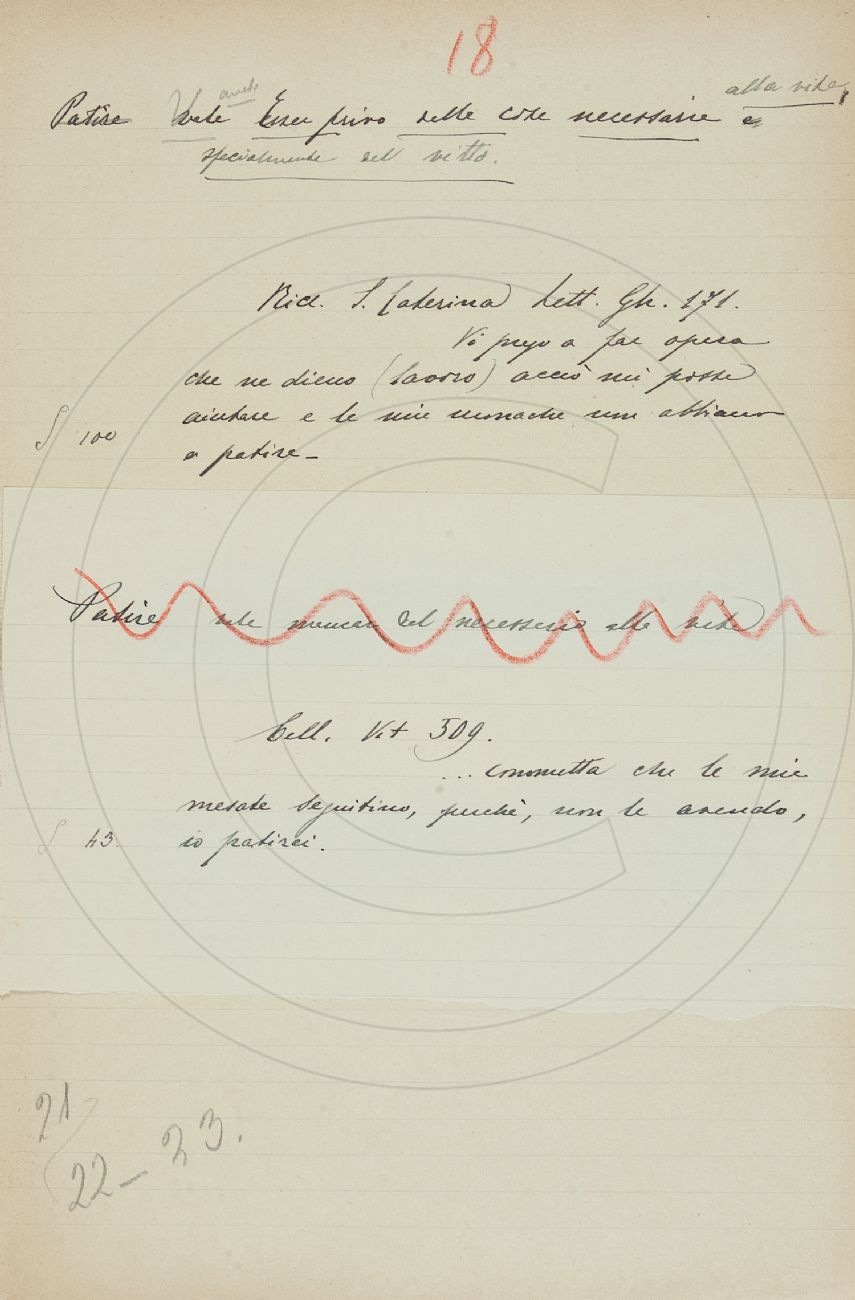 18
anche
alla vita,
Patire Vale Esser privo delle cose necessarie
specialmente del vitto.
Ricc. S. Caterina Lett. Gh. 171.
Vi prego a far opera
che ne dieno (lavoro) acciò mi possa
aiutare e le mie monache non abbiano
a patire_
100
Patire vale mancar del necessario alla vita
Cell. Vit 509.
... commetta che le mie
mesate seguitino, perchè, non le avendo,
43. io patirei.
21
22 - 23.